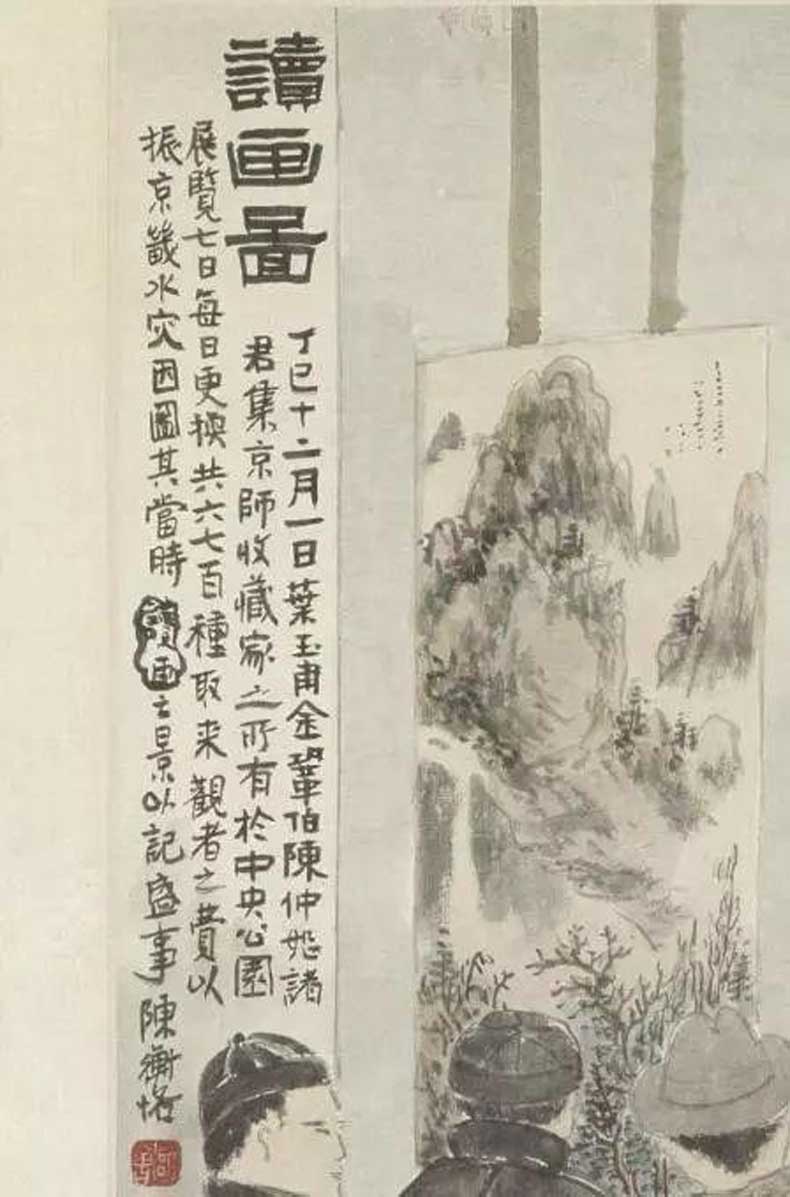 讀画啚
丁巳十二月一日葉玉甫金鞏伯陳仲恕諸
君集京師收藏家之所有於中央公園
展覽七日每日更换共六七百種取来觀者之費以
振京畿水灾因圖其當時讀画之景以記盛事 陳衡恪